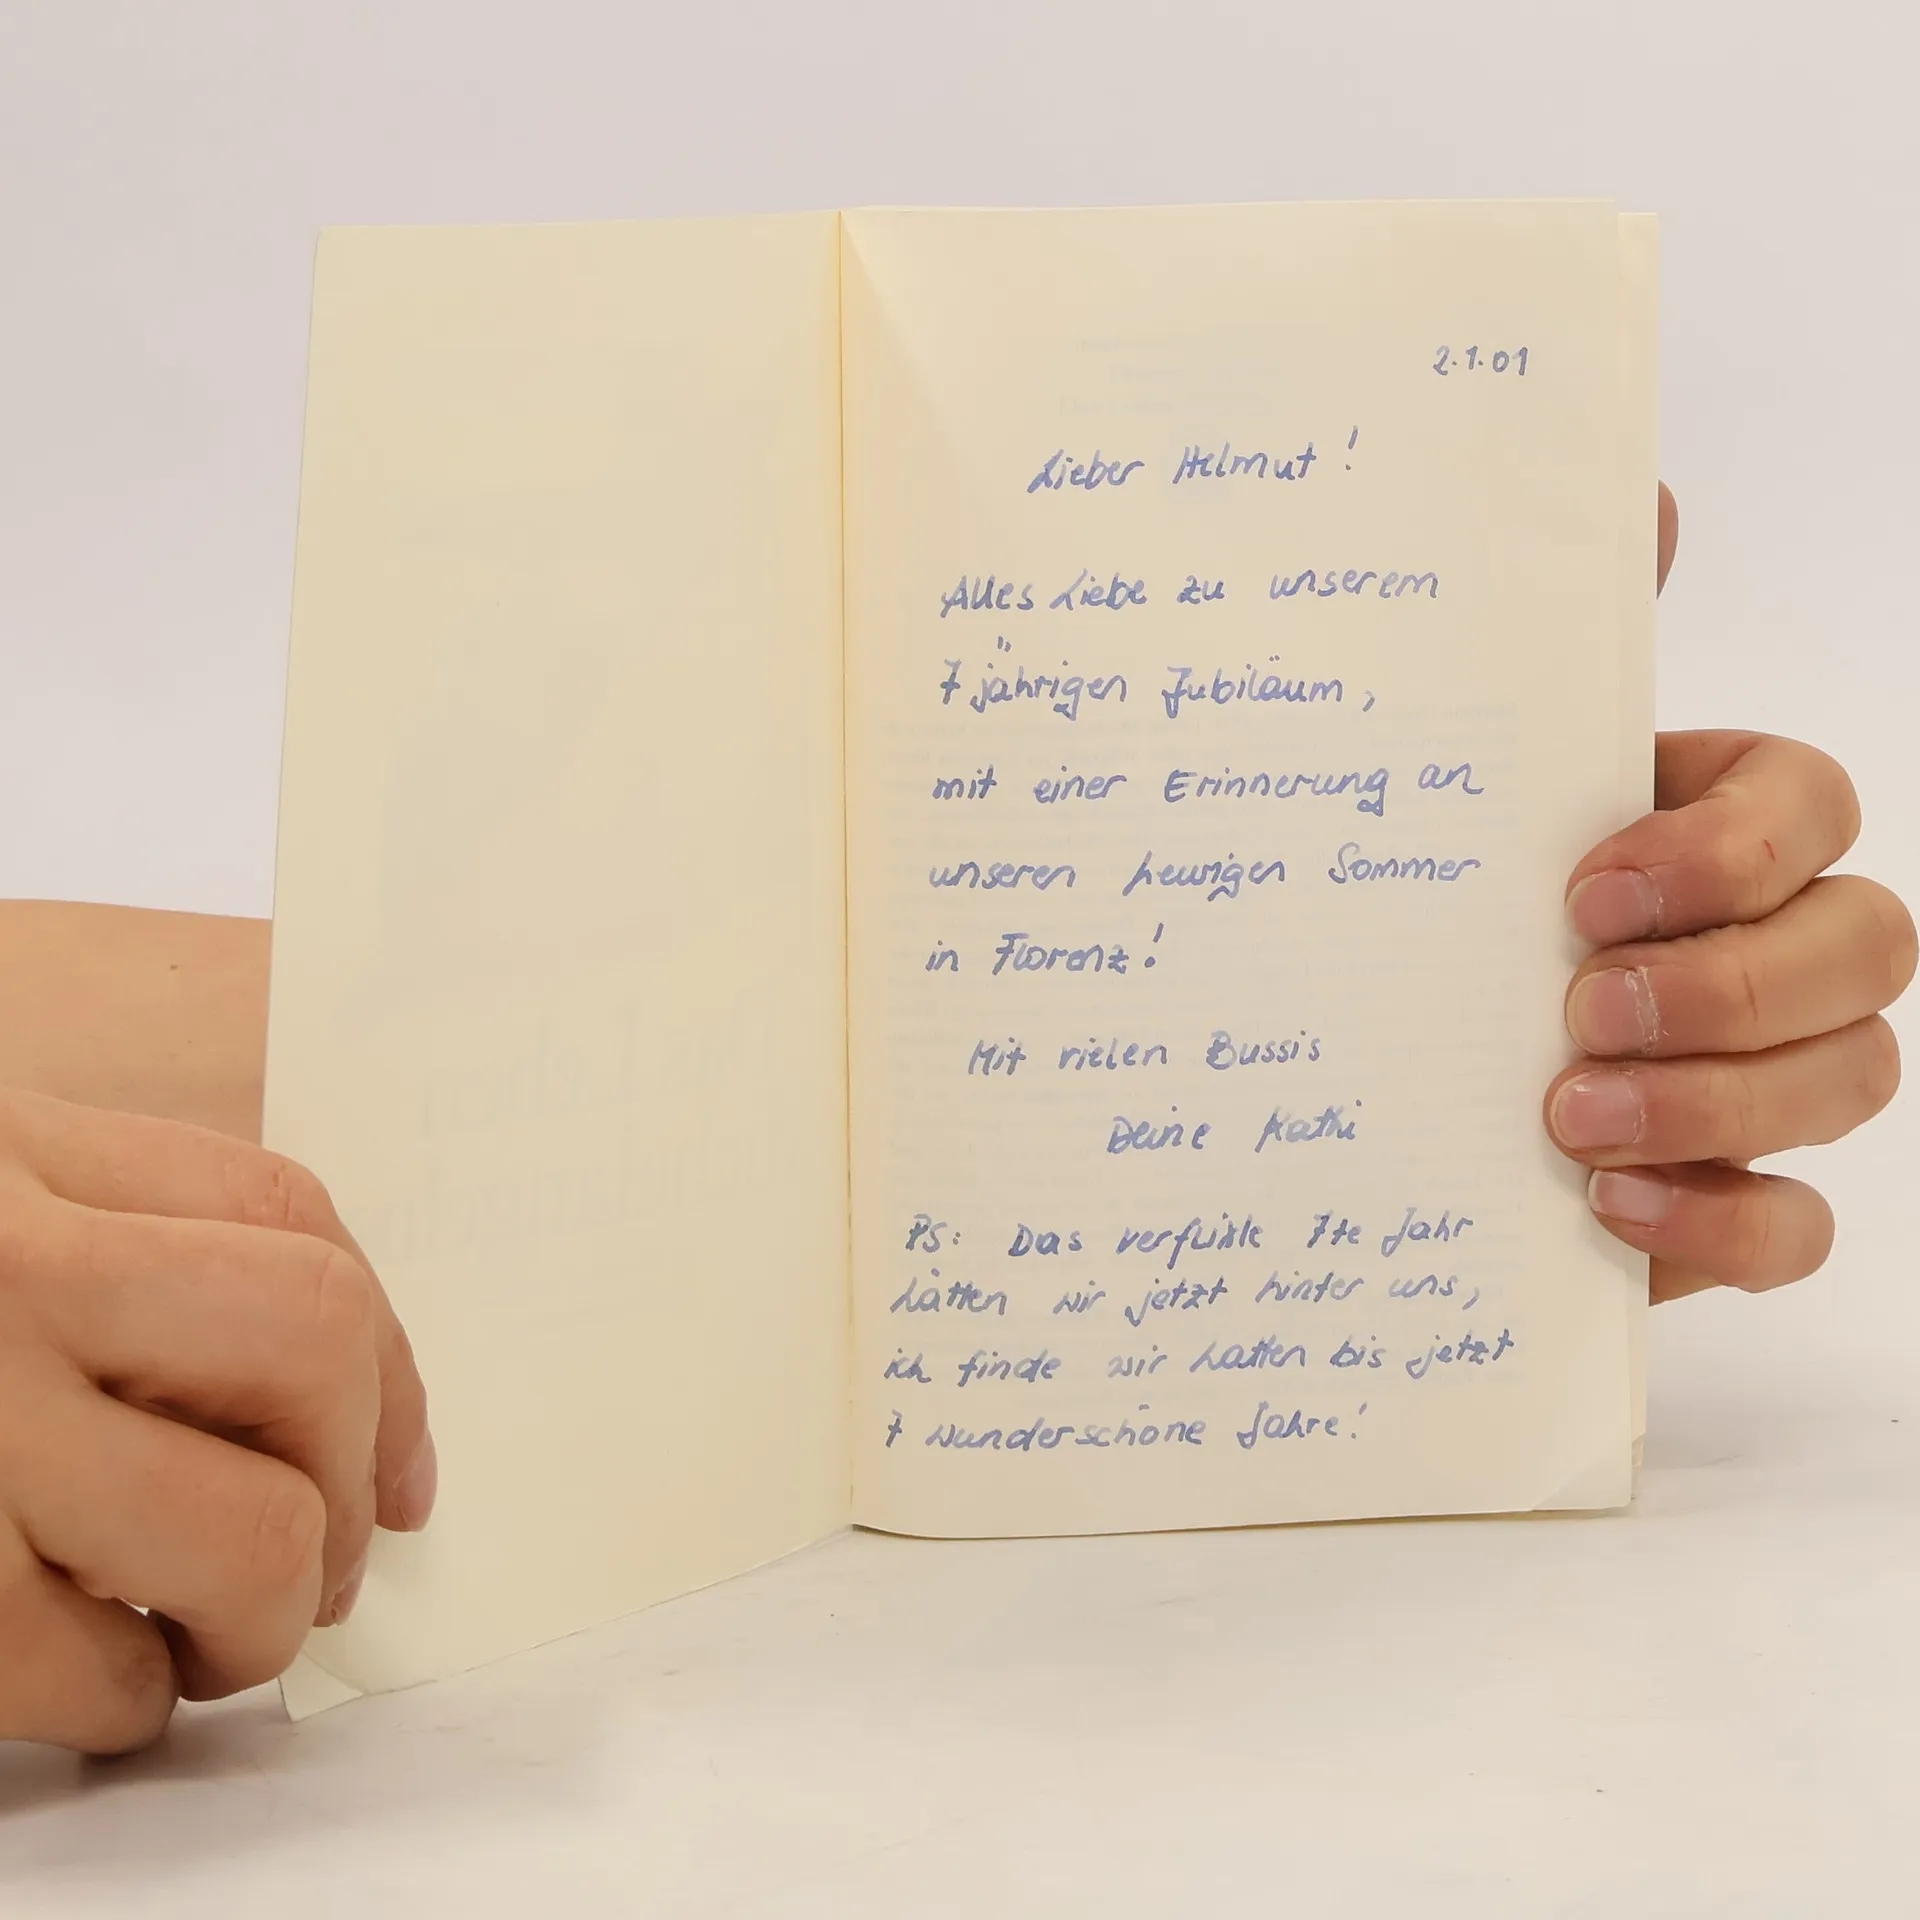 2.1.01
Lieber Helmut!
Alles Liebe zu unserem
7 jährigen Jubiläum,
mit einer Erinnerung an
unseren heurigen Sommer
in Florenz!
Mit vielen Bussis
Deine Kathi
PS: Das verflixte 7te Jahr
hätten wir jetzt hinter uns,
ich finde wir hatten bis jetzt
7 wunderschöne Jahre!